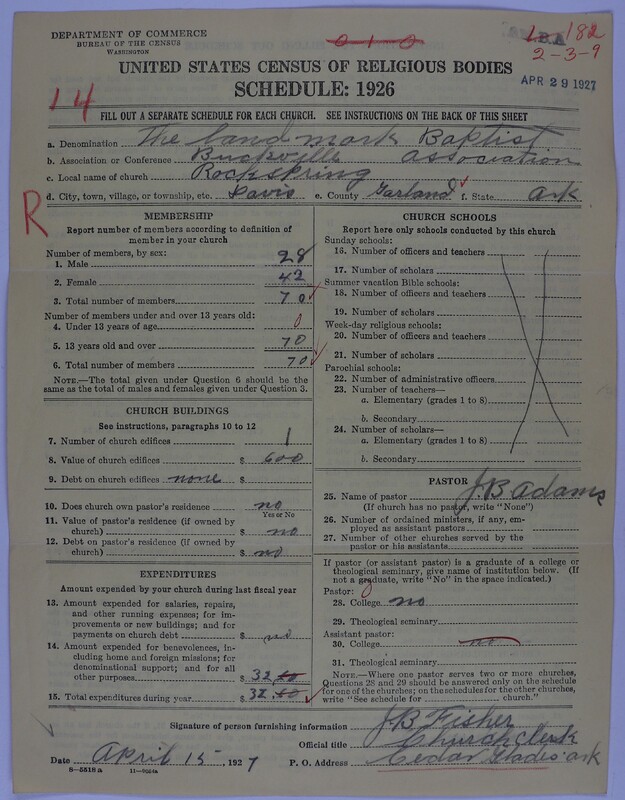 DEPARTMENT OF COMMERCE
BUREAU OF THE CENSUS
WASHINGTON
0 1 0
182
2-3-9
APR 29 1927
UNITED STATES CENSUS OF RELIGIOUS BODIES
SCHEDULE: 1926
14
FILL OUT A SEPARATE SCHEDULE FOR EACH CHURCH. SEE INSTRUCTIONS ON THE BACK OF THIS SHEET
a. Denomination The land mark Baptist
b. Association or Conference Buckville association
c. Local name of church Rockspring
d. City, town, village, or township, etc. Davis e. County Garland f. State Ark
R
MEMBERSHIP
Report number of members according to definition of
member in your church
Number of members, by sex:
1. Male 28
2. Female 42
3. Total number of members 70
Number of members under and over 13 years old:
4. Under 13 years of age 0
5. 13 years old and over 70
6. Total number of members 70
NOTE.—The total given under Question 6 should be the
same as the total of males and females given under Question 3.
CHURCH BUILDINGS
See instructions, paragraphs 10 to 12
7. Number of church edifices 1
8. Value of church edifices $ 600
9. Debt on church edifices none $
10. Does church own pastor's residence no
Yes or No
11. Value of pastor's residence (if owned by
church) $ no
12. Debt on pastor's residence (if owned by
church) $ no
EXPENDITURES
Amount expended by your church during last fiscal year
13. Amount expended for salaries, repairs,
and other running expenses; for im-
provements or new buildings; and for
payments on church debt $ no
14. Amount expended for benevolences,
including home and foreign missions; for
denominational support; and for all
other purposes $ 32.00
15. Total expenditures during year $ 32.00
CHURCH SCHOOLS
Report here only schools conducted by this church
Sunday schools:
16. Number of officers and teachers
17. Number of scholars
Summer vacation Bible schools:
18. Number of officers and teachers
19. Number of scholars
Week-day religious schools:
20. Number of officers and teachers
21. Number of scholars
Parochial schools:
22. Number of administrative officers
23. Number of teachers—
a. Elementary (grades 1 to 8)
b. Secondary
24. Number of scholars—
a. Elementary (grades 1 to 8)
b. Secondary
PASTOR
25. Name of pastor J.B Adams
(If church has no pastor, write "None")
26. Number of ordained ministers, if any, em-
ployed as assistant pastors
27. Number of other churches served by the
pastor or his assistants
If pastor (or assistant pastor) is a graduate of a college or
theological seminary, give name of institution below. (If
not a graduate, write "No" in the space indicated.)
Pastor: 0
28. College no
29. Theological seminary
Assistant pastor:
30. College no
31. Theological seminary
NOTE.—Where one pastor serves two or more churches,
Questions 28 and 29 should be answered only on the schedule
for one of the churches; on the schedules for the other churches,
write "See schedule for church."
Signature of person furnishing information J B Fisher
Official title Church clerk
Date April 15, 1927 P. O. Address Cedar Glades ark
8—5518 a